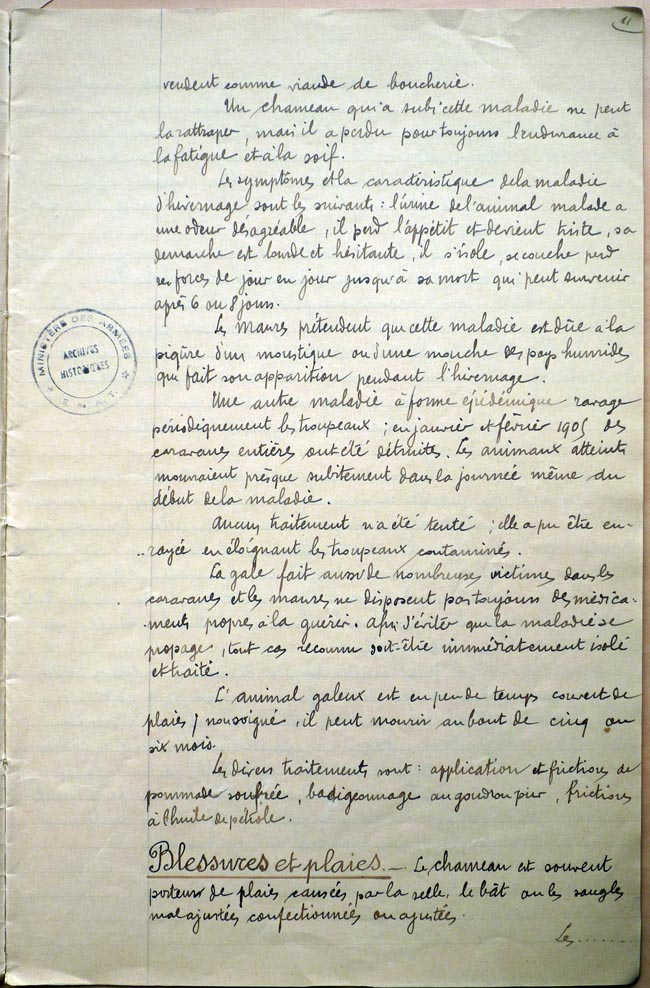 11
vendent comme viande de boucherie.
Un chameau qui a subi cette maladie ne peut
la rattraper, mais il a perdu pour toujours l'endurance à
la fatigue et à la soif.
Les symptômes et la caractéristique de la maladie
d'hivernage sont les suivants : l'urine de l'animal malade a
une odeur désagréable, il perd l'appétit et devient triste, sa
demarche est lourde et hésitante, il s'isole, se couche perd
ses forces de jour en jour jusqu'à sa mort qui peut survenir
après 6 ou 8 jours.
Les Maures prétendent que cette maladie est dûe à la
piqûre d'un moustique ou d'une mouche des pays humides
qui fait son apparition pendant l'hivernage.
Une autre maladie à forme épidémique ravage
périodiquement les troupeaux ; en janvier et février 1905 des
caravanes entières ont été détruites. Les animaux atteints
mouraient presque subitement dans la journée même du
début de la maladie.
Aucun traitement n'a été tenté ; elle a pu être en-
rayée en éloignant les troupeaux contaminés.
La gale fait aussi de nombreuses victimes dans les
caravanes et les maures ne disposent pas toujours des médica-
-ments propres à la guérir. Afin d'éviter que la maladie se
propage, tout cas reconnu doit-être immédiatement isolé
et traité.
L'animal galeux est en peu de temps couvert de
plaies / non soigné, il peut mourir au bout de cinq ou
six mois.
Les divers traitements sont : application et frictions de
pommade soufrée, badigeonnage au goudron pur, frictions
à l'huile de pétrole.
Blessures et plaies. — Le chameau est souvent
porteur de plaies causées par la selle, le bât ou les sangles
mal ajustées confectionnées ou ajustées.
Les.......
MINISTÈRE DES ARMÉES
ARCHIVES
HISTORIQUES
E. M. A. T.